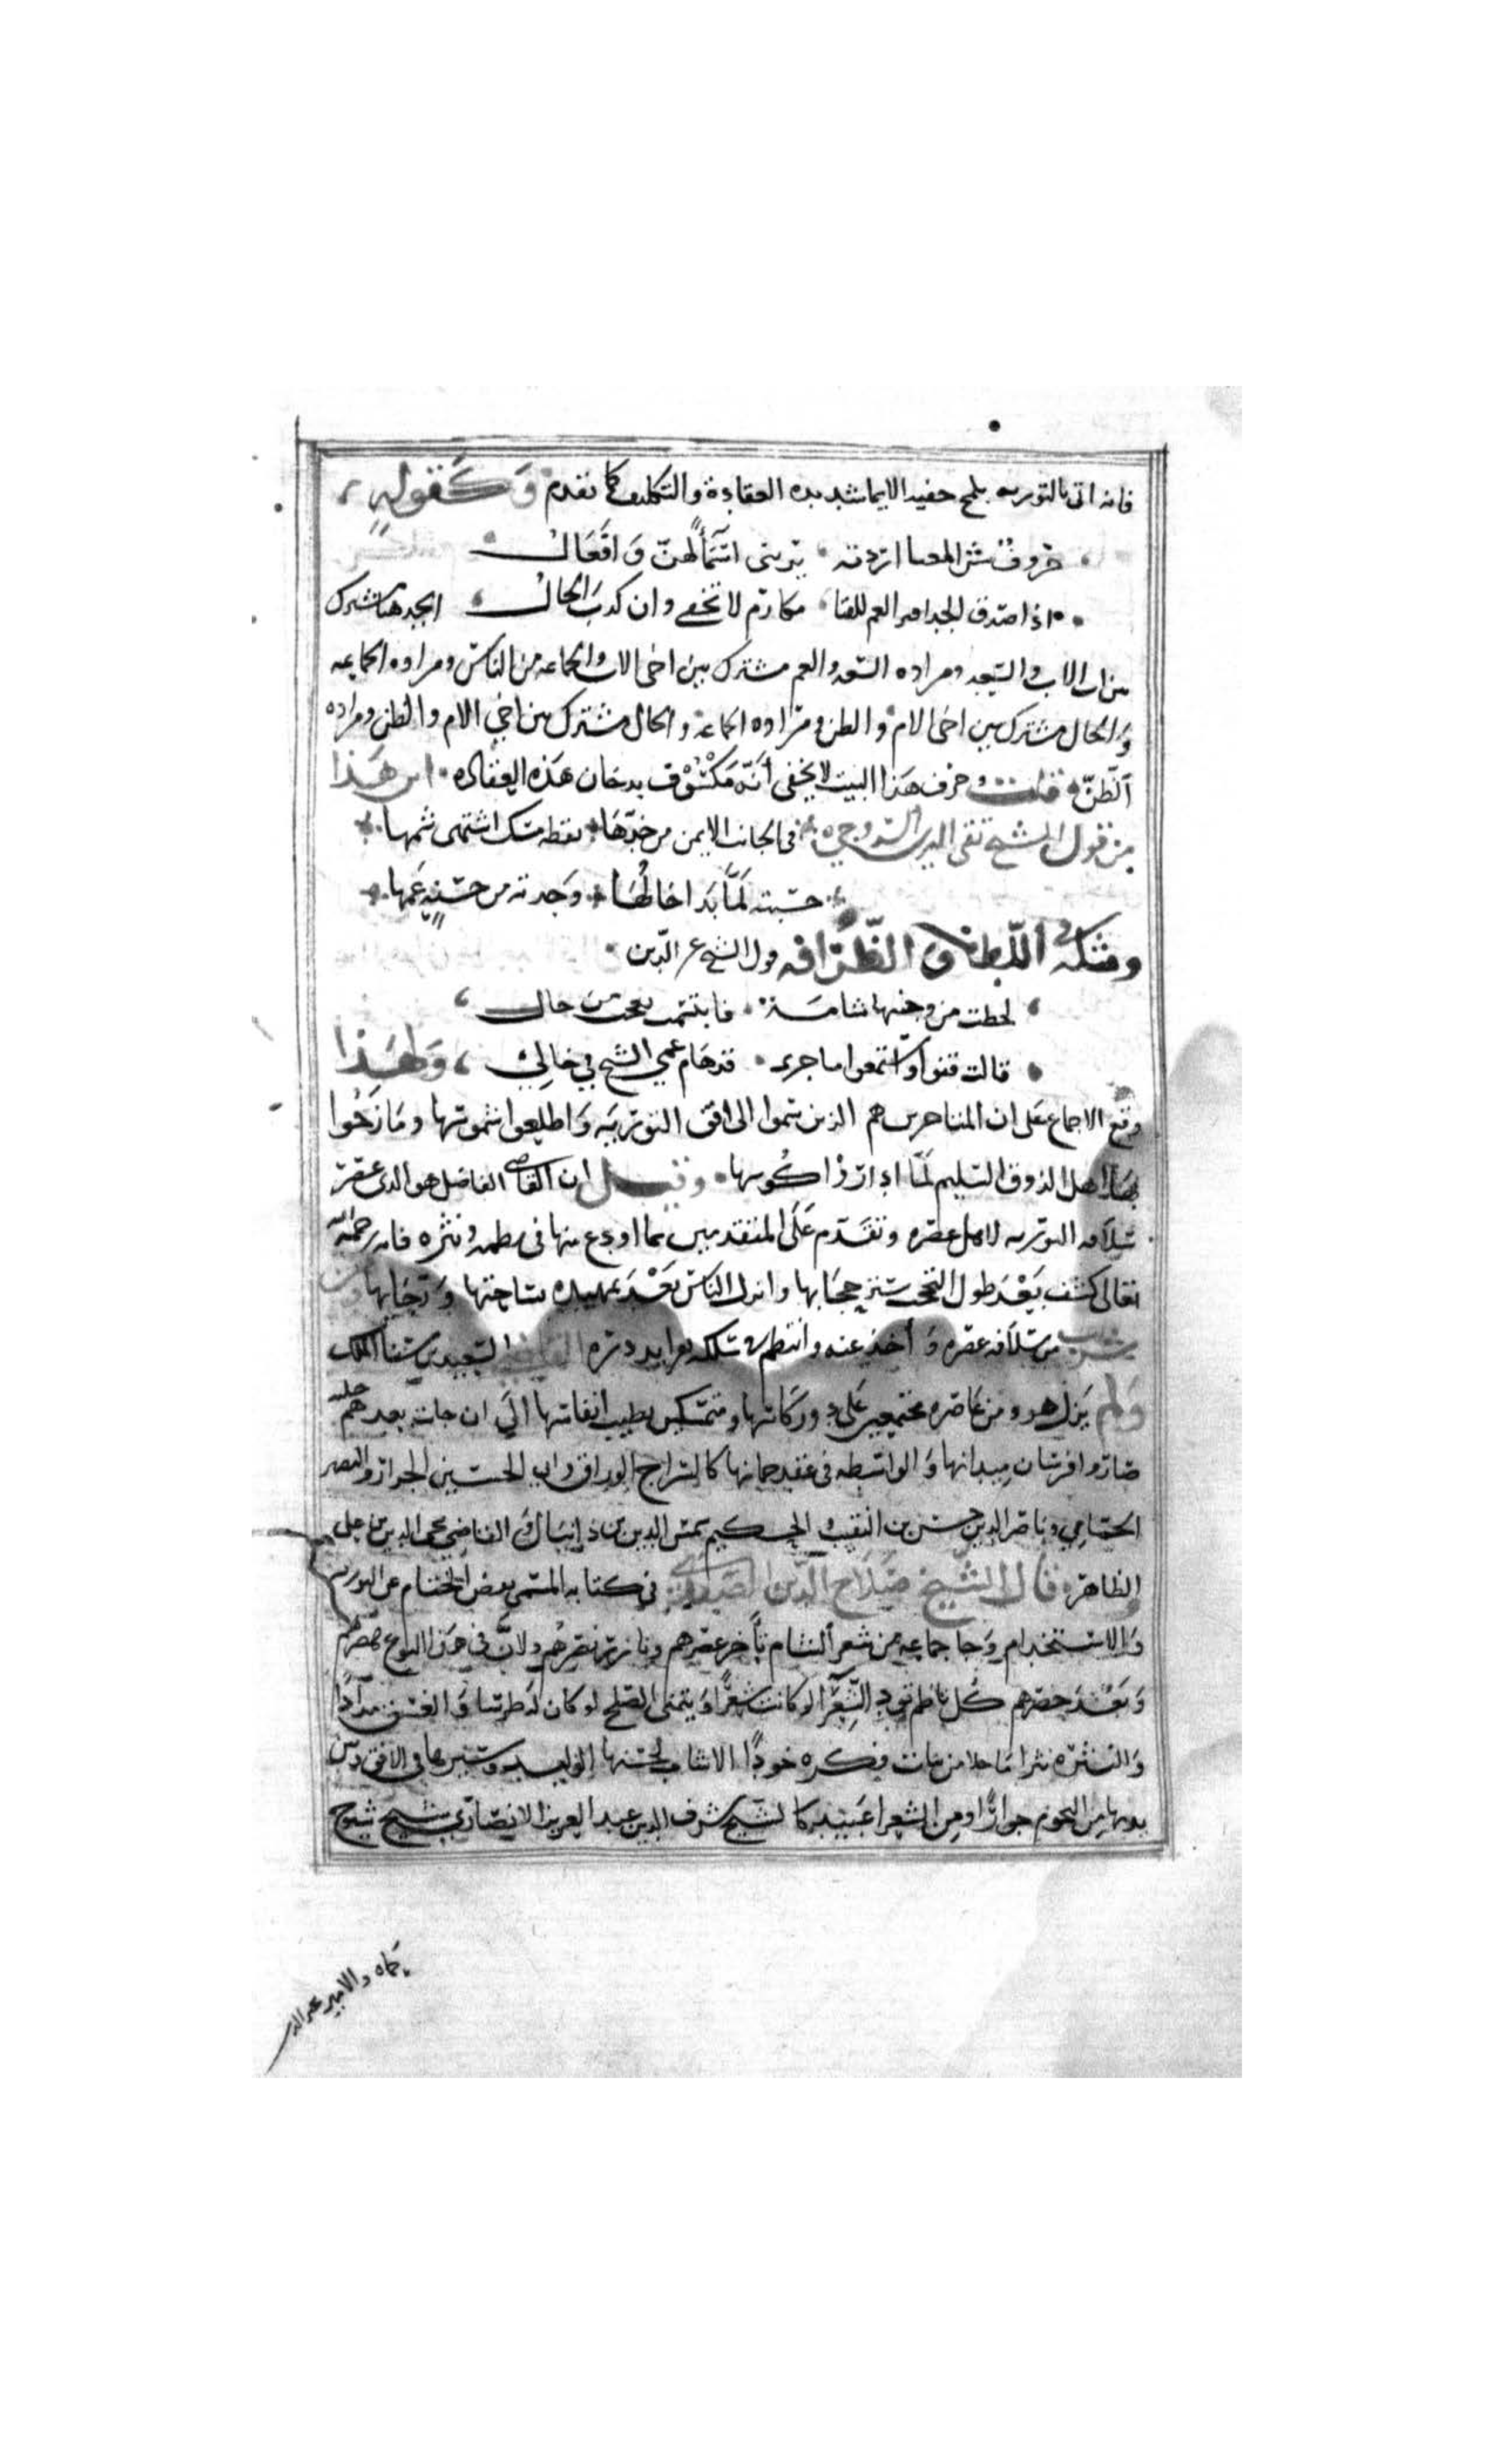 فانه اتى بالتوريه بلمح خفيه الايما شديده العقادة والتكليف كما تقدم وكقوله
حروف سر المعنا اردته يريني اسمآ لهن وافعال
اذا صدق الجد امر العم للفتا مكارم لا تخفى وان كدب الخال الجد هنا مشترك
بين اب الاب والسعد ومراده السعد والعم مشترك بين اخى الاب والجماعه من الناس ومراده الجماعه
والخال مشترك بين اخى الام والظن ومراده الجماعة والخال مشترك بين اخي الام والظن ومراده
الظن قلت وحرف هذا البيت لا يخفى أنه مكشوف بدخان هذه العقاده اين هذا
من قول الشيخ تقى الدين السروجي في الجانب الايمن من خدها نقطه مسك اشتهى شمها
حسبته لما بدا خالها وجدته من حسنه عمها
ومثله في اللطف والظرافه قول الشيخ عز الدين
لحظت من وجنتها شامة فابتسمت تعجب من حال
قالت قفوا واستمعوا ما جرى قد هام عمي الشيخ في خالي ولهذا
وقع الاجماع على ان المتاخرين هم الذين سموا الى افق التوريه واطلعوا شموسها ومازحوا
بها اهل الذوق السليم لما اداروا كوسها وقيل ان القاضي الفاضل هو الدى عصر
سلافه التوريه لاهل عصره وتقدم على المتقدمين بما اودع منها في نظمه ونثره فانه رحمه الله
تعالى كشف بعد طول التحجب ستر حجابها وانزل الناس بعد تمهيده بساحتها ورحابها وممن
شرب من سلافه عصره وأخذ عنه وانتظم في سلكه بفرايد دره القاضي السعيد بن سنا الملك
ولم يزل هو ومن عاصره مجتمعين على دور كاسها ومتمسكين بطيب انفاسها الى ان جات بعدهم حلبه
صاروا فرسان ميدانها والواسطه في عقد جمانها كالسراج الوراق وابي الحسين الجزار والنصير
الحمامي وناصر الدين حسن بن النقيب والحكيم شمس الدين بن دانيال والقاضي محى الدين بن عبد
الظاهر قال الشيخ صلاح الدين الصفدي في كتابه المسمى بفض الختام عن التوريه
والاستخدام وجا جماعه من شعر الشام تأخر عصرهم وتازر نصرهم ولان في هذا النوع هصرهم
وبعد حصرهم كل ناظم تود الشعرا لو كانت شعرا ويتمنى الصبح لو كان له طرسا والغسق مدادا
والنثره نثرا ما جلا من بنات فكره خودا الا شاب لحسنها الوليد وسيرها في الافق وبين
يديها من النجوم جوارا ومن الشعرا عبيد كالشيخ شرف الدين عبد العزيز الانصاري شيخ شيوخ
حماه والامير مجير الدين